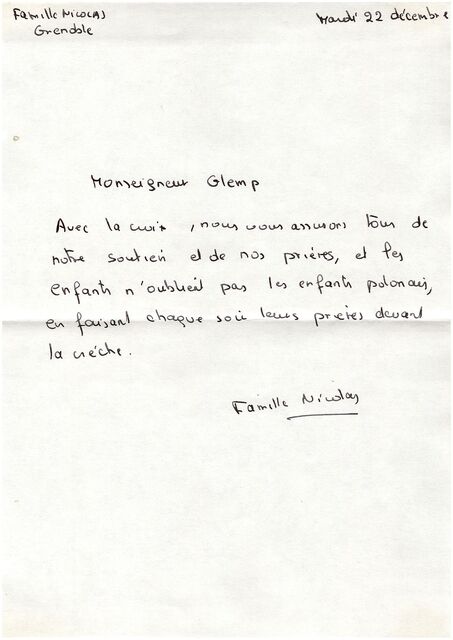 Famille NICOLAS
Grenoble
Mardi 22 décembre
Monseigneur Glemp
Avec la croix, nous vous assurons tous de
notre soutien et de nos prières, et les
enfants n'oublient pas les enfants polonais,
en faisant chaque soir leurs prières devant
la crèche.
Famille Nicolas